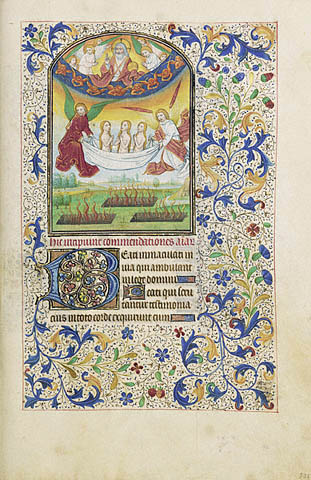 Hic incipiunt commendationes aiar
Beati immaculati in
via qui ambulant
in lege domini
Beati qui scru
tantur testimonia
eius in toto corde exquirunt eum